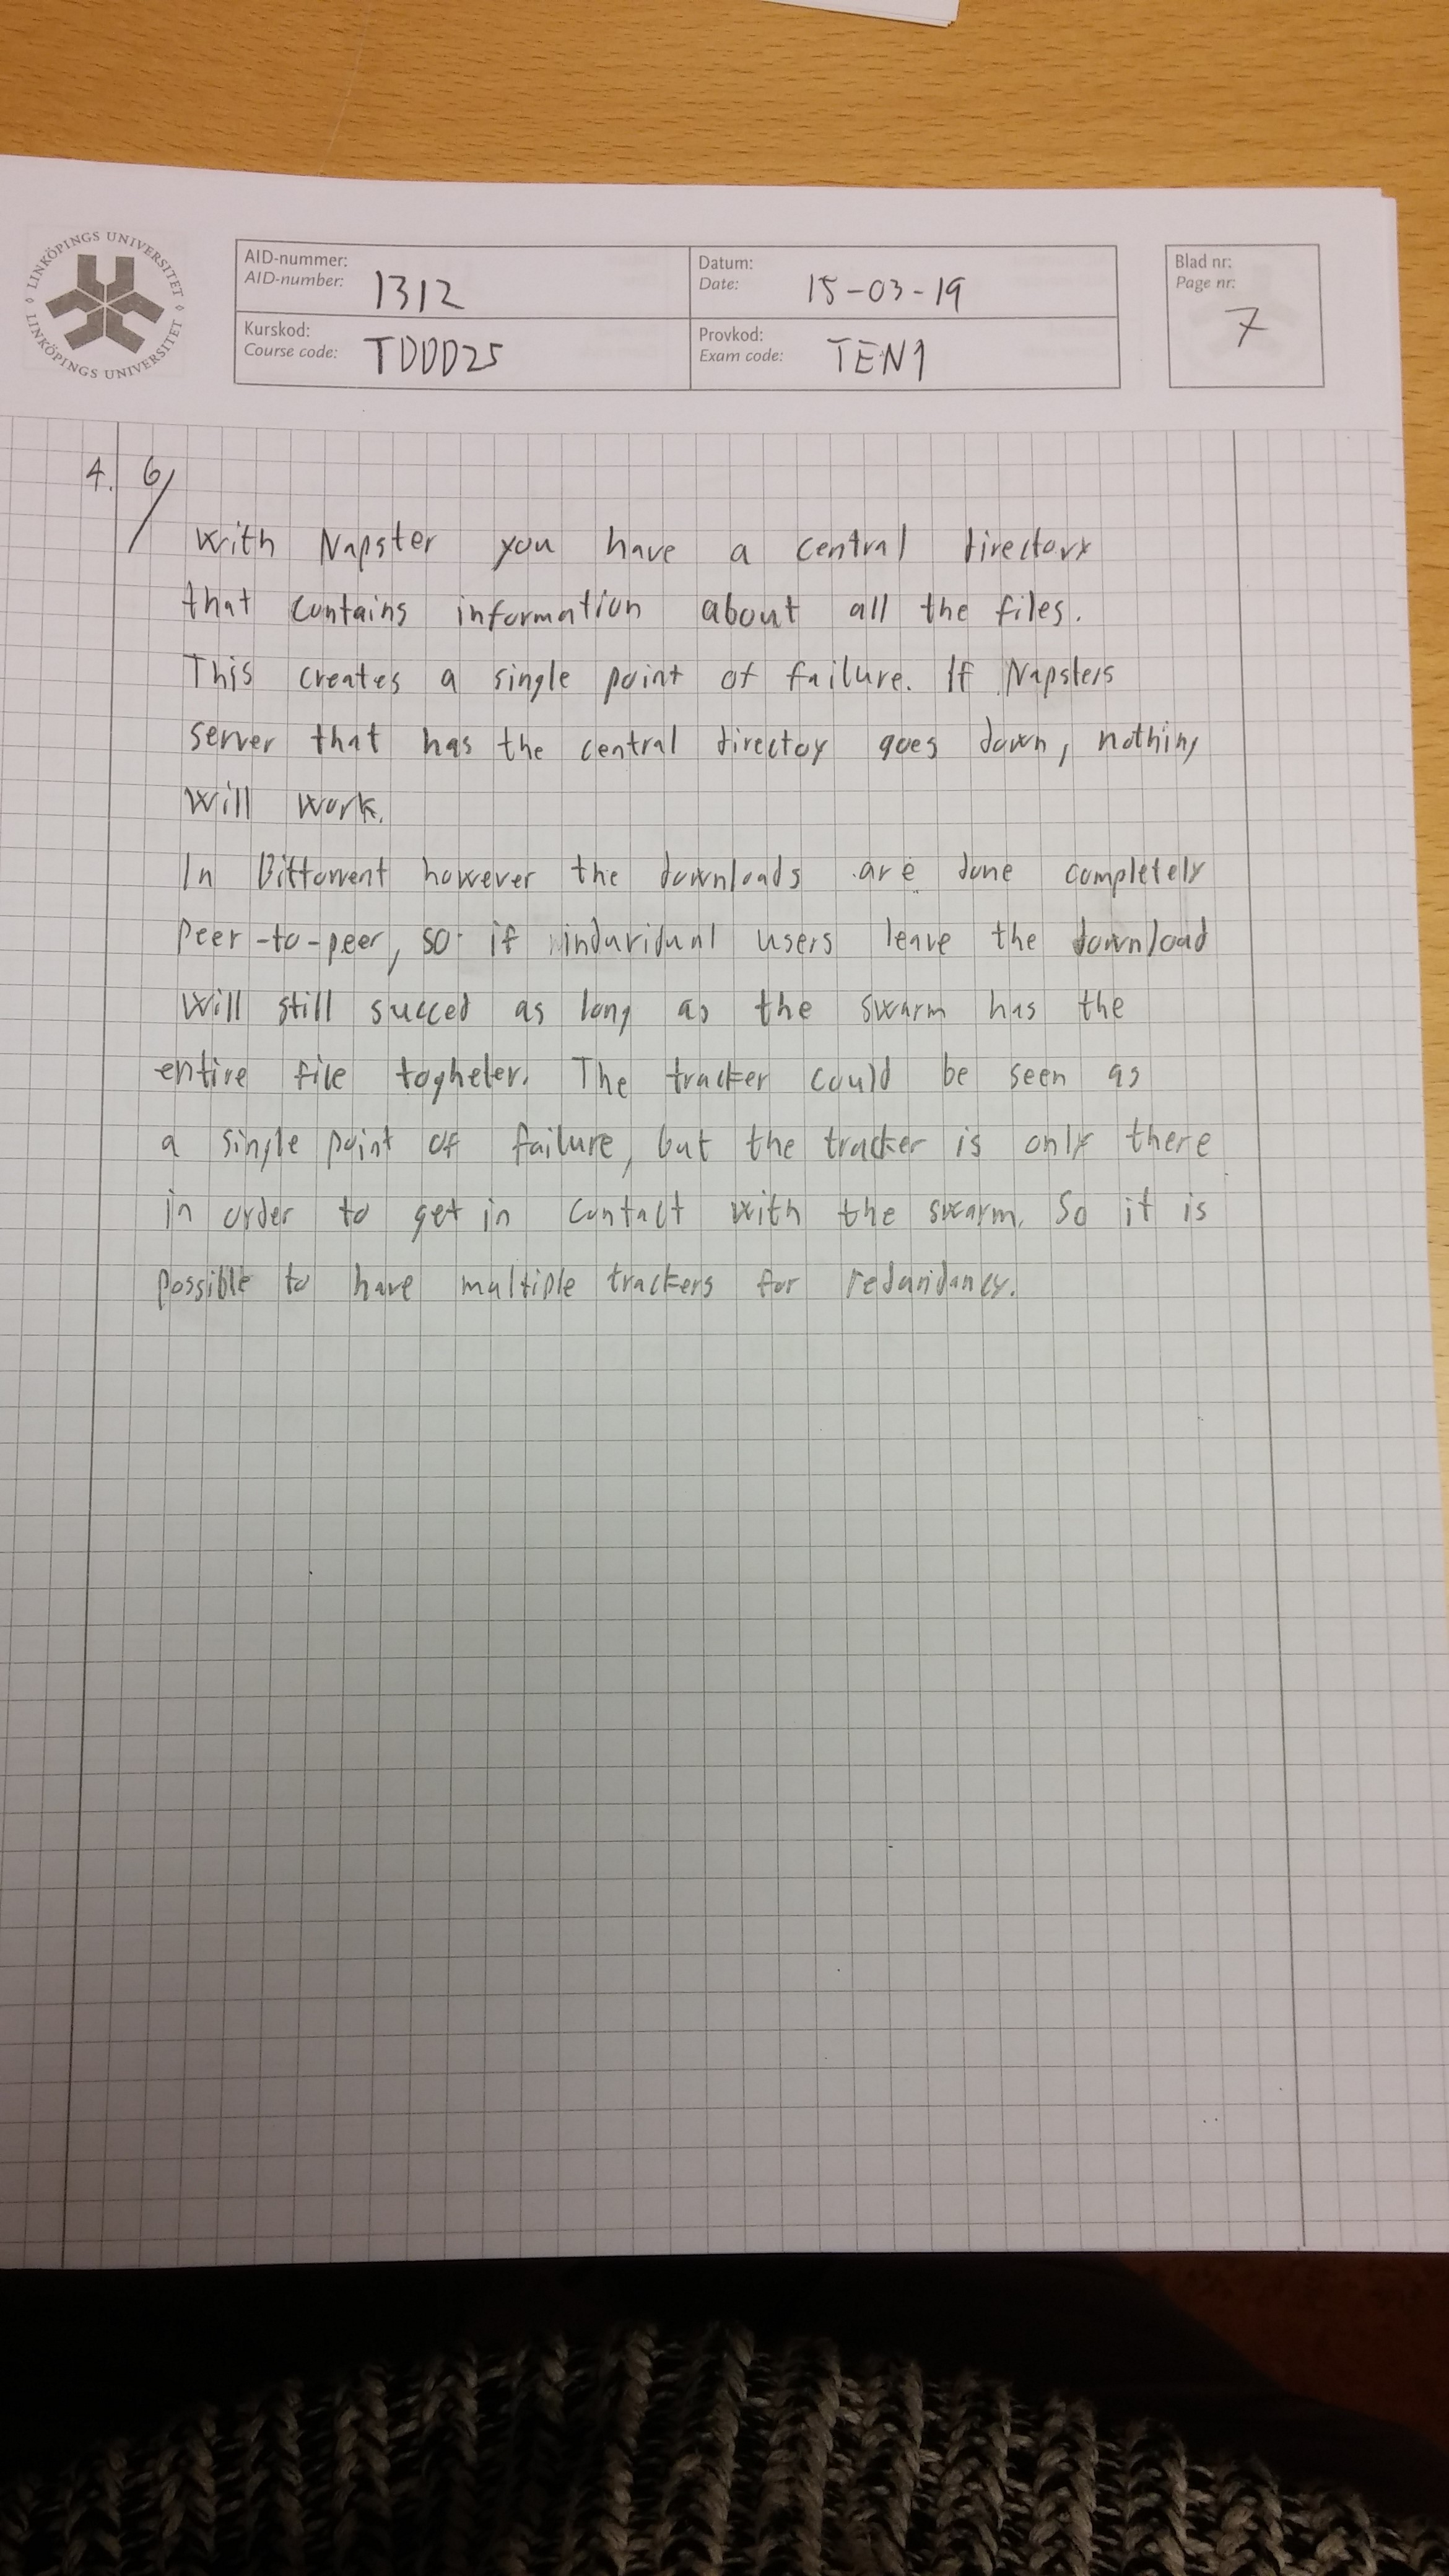 LINKÖPINGS UNIVERSITET
LINKÖPINGS UNIVERSITET
AID-nummer:
AID-number: 1312
Datum:
Date: 15-03-19
Blad nr:
Page nr:
7
Kurskod:
Course code: TDDD25
Provkod:
Exam code: TEN1
4. 6/
With Napster you have a central directory
that contains information about all the files.
This creates a single point of failure. If Napsters
server that has the central directoy goes down, nothing
will work.
In Bittorrent however the downloads are done completely
peer-to-peer, so if induvidual users leave the download
will still succed as long as the swarm has the
entire file togheter. The tracker could be seen as
a single point of failure, but the tracker is only there
in order to get in contact with the swarm. So it is
possible to have multiple trackers for redundancy.